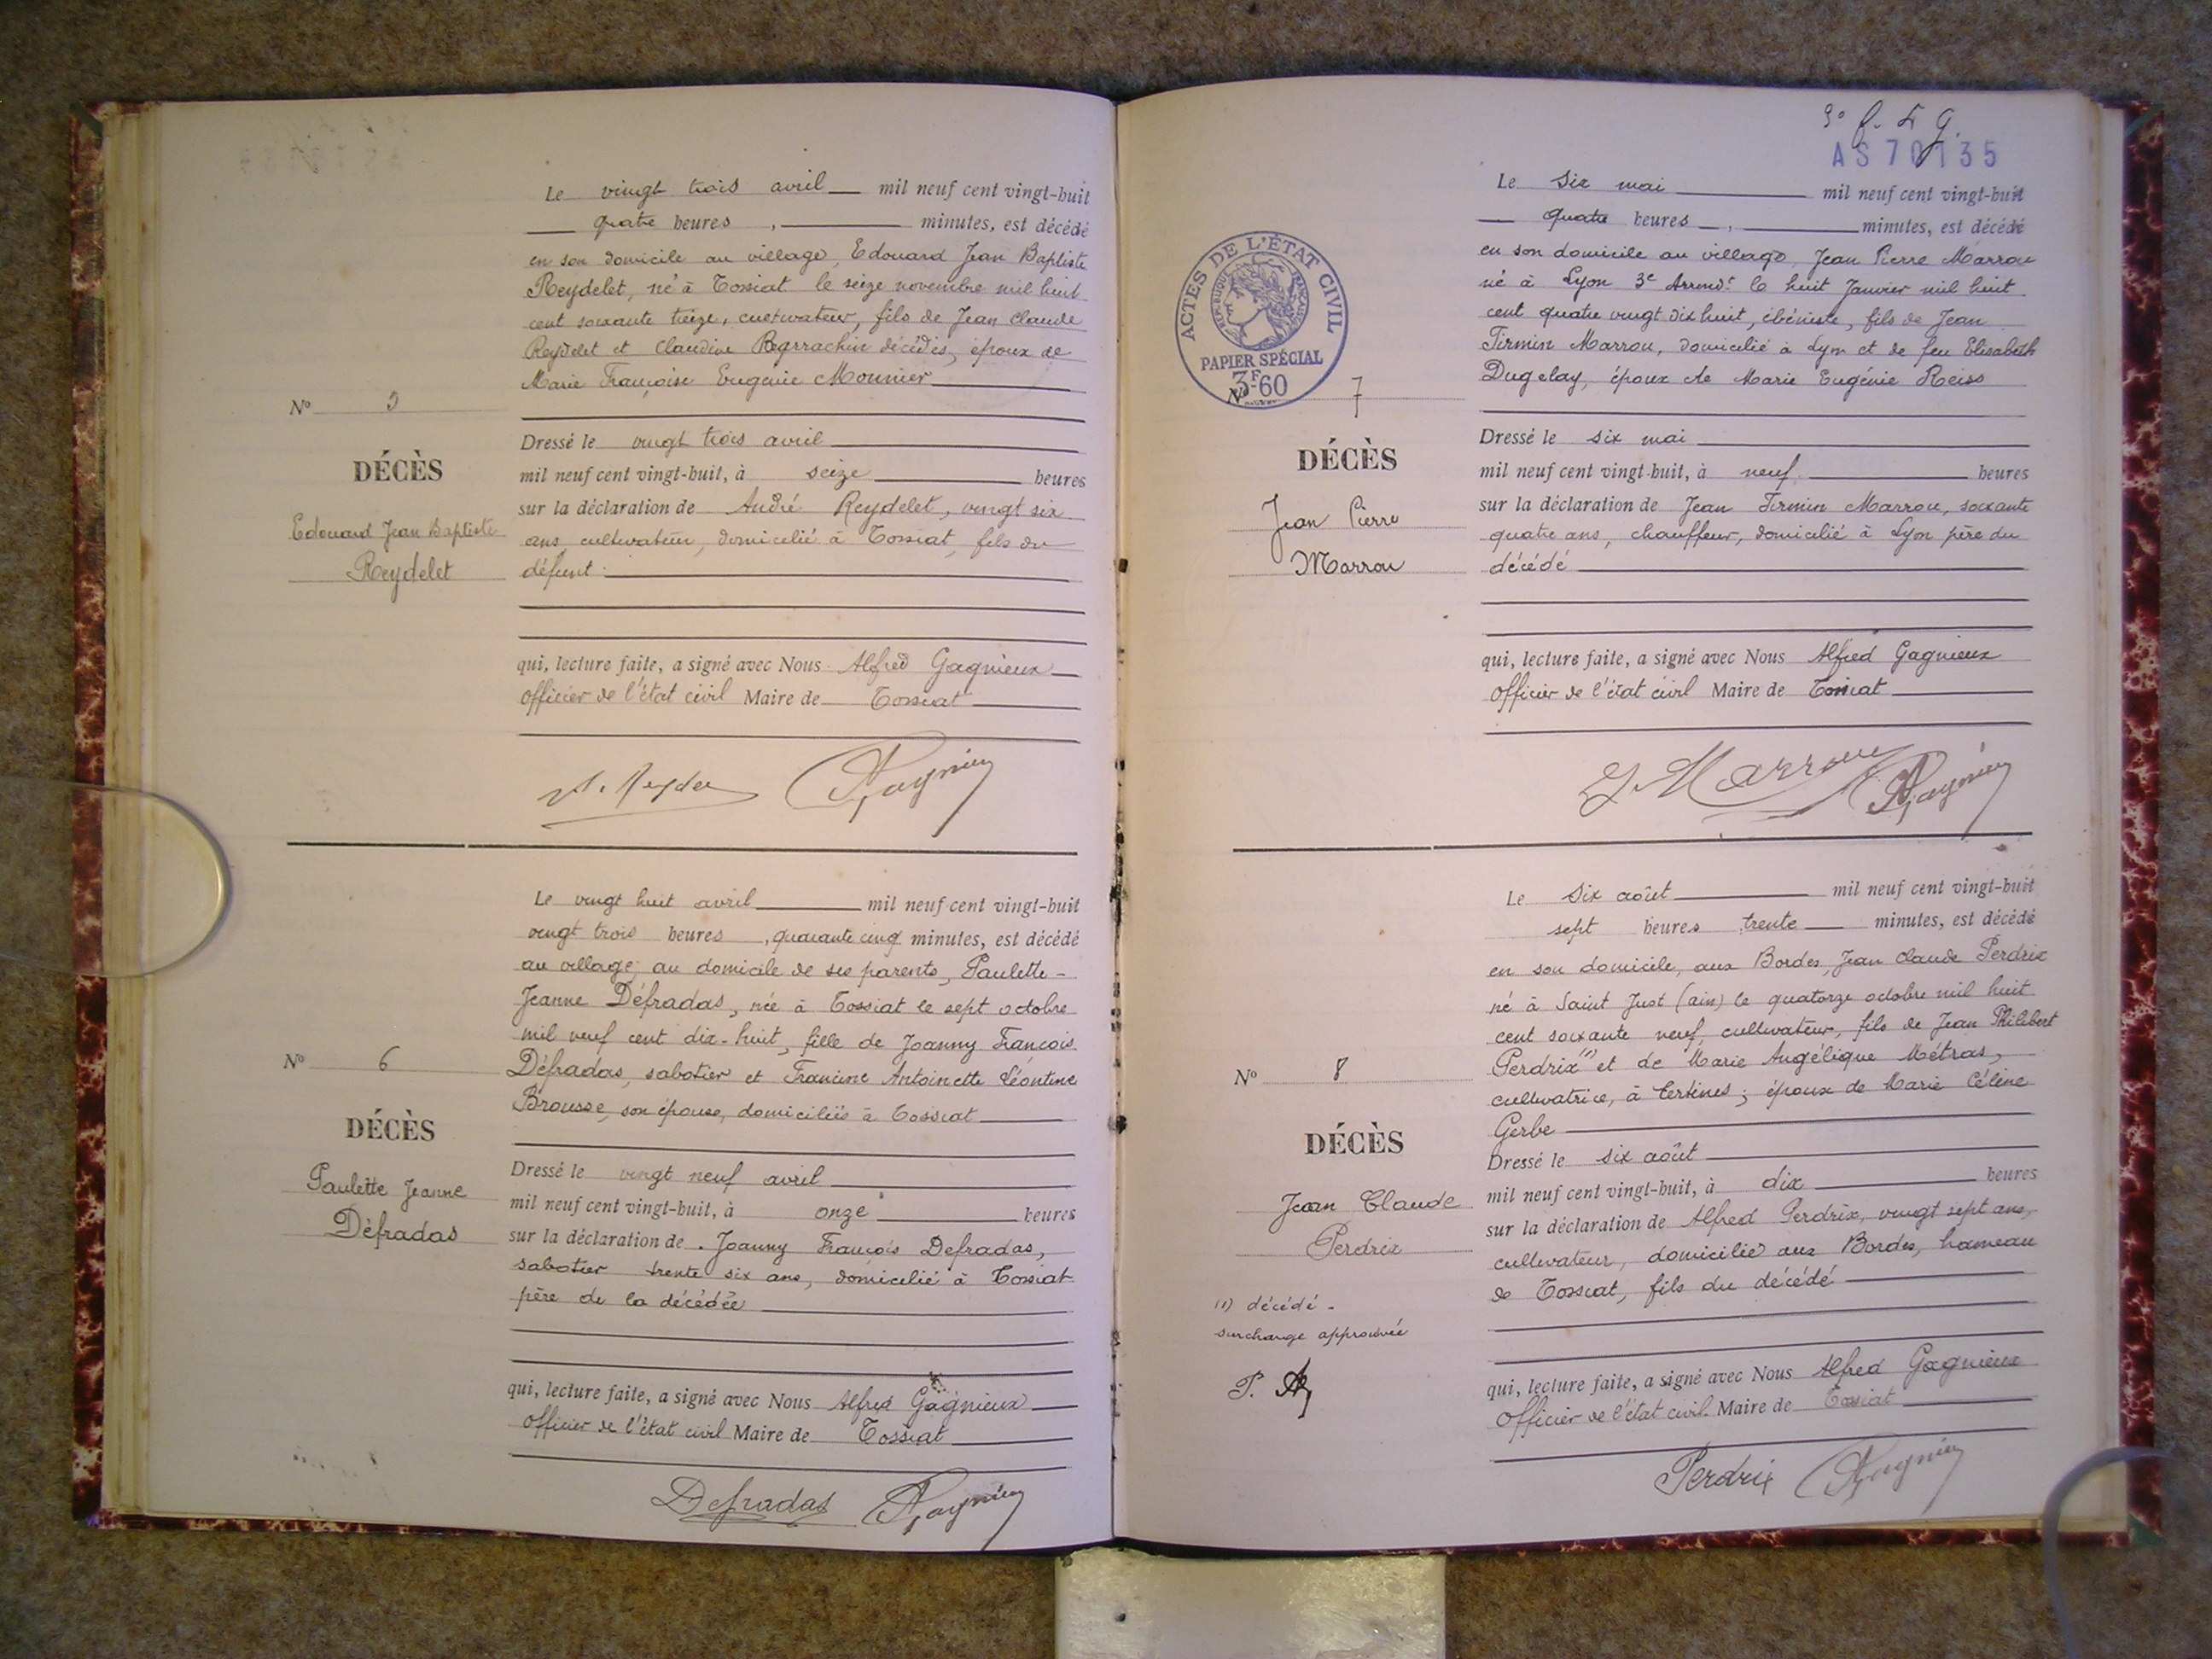 Le vingt trois avril mil neuf cent vingt-huit
quatre heures , minutes, est décédé
en son domicile au village, Edouard Jean Baptiste
Reydelet, né à Tossiat le seize novembre mil huit
cent soixante treize, cultivateur, fils de Jean Claude
Reydelet et Claudine décédés, époux de
Marie Françoise Eugénie Mounier
Nº 5
DÉCÈS
Edouard Jean Baptiste
Reydelet
Dressé le vingt trois avril
mil neuf cent vingt-huit, à seize heures
sur la déclaration de André Reydelet, vingt six
ans cultivateur, domicilié à Tossiat, fils du
défunt
qui, lecture faite, a signé avec Nous Alfred Gagnieux
officier de l'état civil Maire de Tossiat
Le vingt huit avril mil neuf cent vingt-huit
vingt trois heures , quarante cinq minutes, est décédé
au village, au domicile de ses parents, Paulette -
Jeanne Défradas, née à Tossiat le sept octobre
mil neuf cent dix-huit, fille de Joanny François
Défradas, sabotier et Francine Antoinette Léontine
Brousse, son épouse, domiciliés à Tossiat
Nº 6
DÉCÈS
Paulette Jeanne
Défradas
Dressé le vingt neuf avril
mil neuf cent vingt-huit, à onze heures
sur la déclaration de Joanny François Defradas,
sabotier trente six ans, domicilié à Tossiat
père de la décédée
qui, lecture faite, a signé avec Nous Alfred Gagnieux
officier de l'état civil Maire de Tossiat
Defradas
AS 70135
ACTES DE L'ÉTAT CIVIL
RÉPUBLIQUE FRANÇAISE
PAPIER SPÉCIAL
3F60
Le six mai mil neuf cent vingt-huit
quatre heures , minutes, est décédé
en son domicile au village, Jean Pierre Marrou
né à Lyon 3e Arrondt le huit Janvier mil huit
cent quatre vingt dix huit, ébéniste, fils de Jean
Firmin Marrou, domicilié à Lyon et de feu Elisabeth
Dugelay, époux de Marie Eugénie Reiss
Nº 7
DÉCÈS
Jean Pierre
Marrou
Dressé le six mai
mil neuf cent vingt-huit, à neuf heures
sur la déclaration de Jean Firmin Marrou, soixante
quatre ans, chauffeur, domicilié à Lyon père du
décédé
qui, lecture faite, a signé avec Nous Alfred Gagnieux
officier de l'état civil Maire de Tossiat
J. Marrou
Le six août mil neuf cent vingt-huit
sept heures trente minutes, est décédé
en son domicile, aux Bordes, Jean Claude Perdrix
né à Saint Just (ain) le quatorze octobre mil huit
cent soixante neuf, cultivateur, fils de Jean Philibert
Perdrix (1) et de Marie Angélique Métras,
cultivatrice, à Certines ; époux de Marie Céline
Gerbe
Nº 8
DÉCÈS
Jean Claude
Perdrix
Dressé le six août
mil neuf cent vingt-huit, à dix heures
sur la déclaration de Alfred Perdrix, vingt sept ans,
cultivateur, domicilié aux Bordes, hameau
de Tossiat, fils du décédé
(1) décédé -
surcharge approuvée
qui, lecture faite, a signé avec Nous Alfred Gagnieux
officier de l'état civil Maire de Tossiat
Perdrix